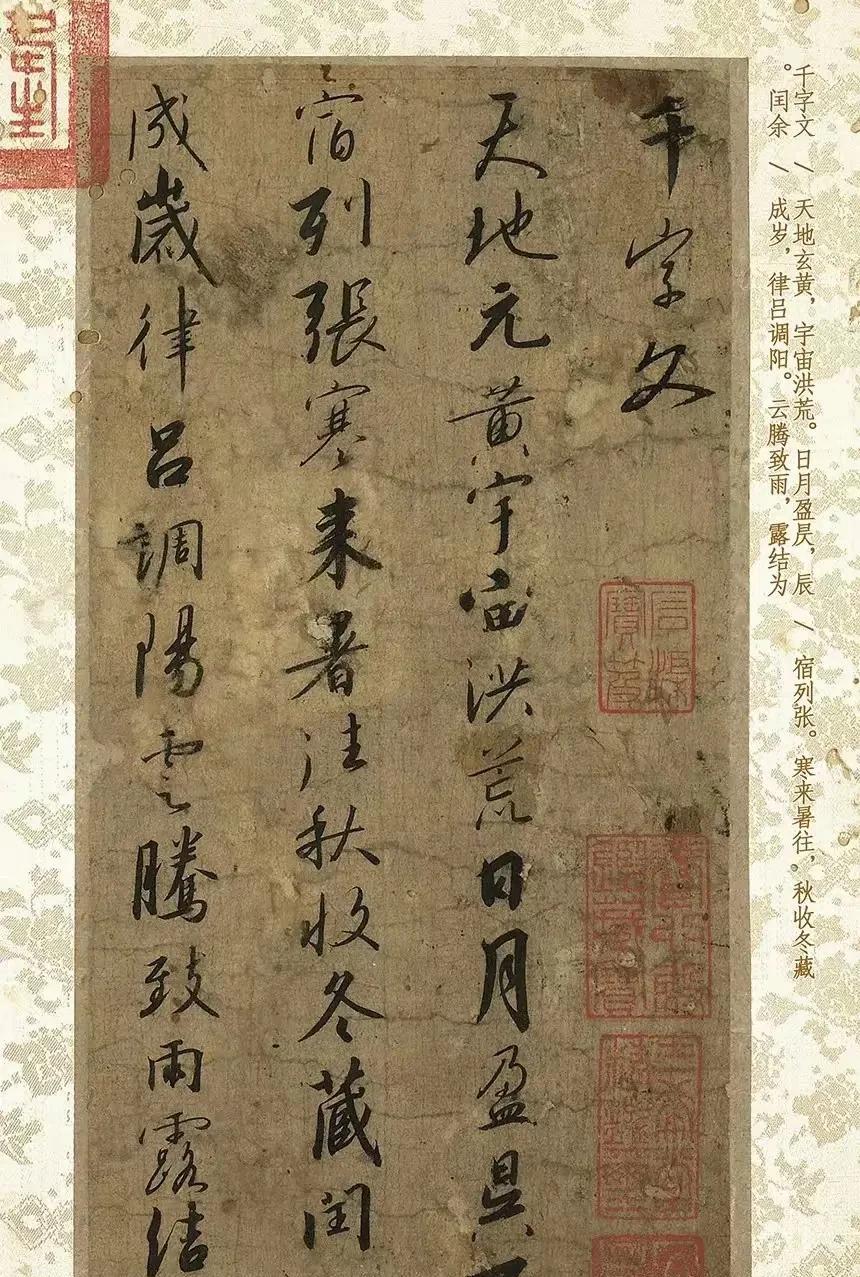 千字文 / 天地玄黄，宇宙洪荒。日月盈昃，辰 / 宿列张。寒来暑往，秋收冬藏
。闰余 / 成岁，律吕调阳。云腾致雨，露结为
千字文
石渠
寶笈
天地元黄宇宙洪荒日月盈昃
宿列張寒来暑往秋收冬藏閏
成歲律吕調陽雲騰致雨露結